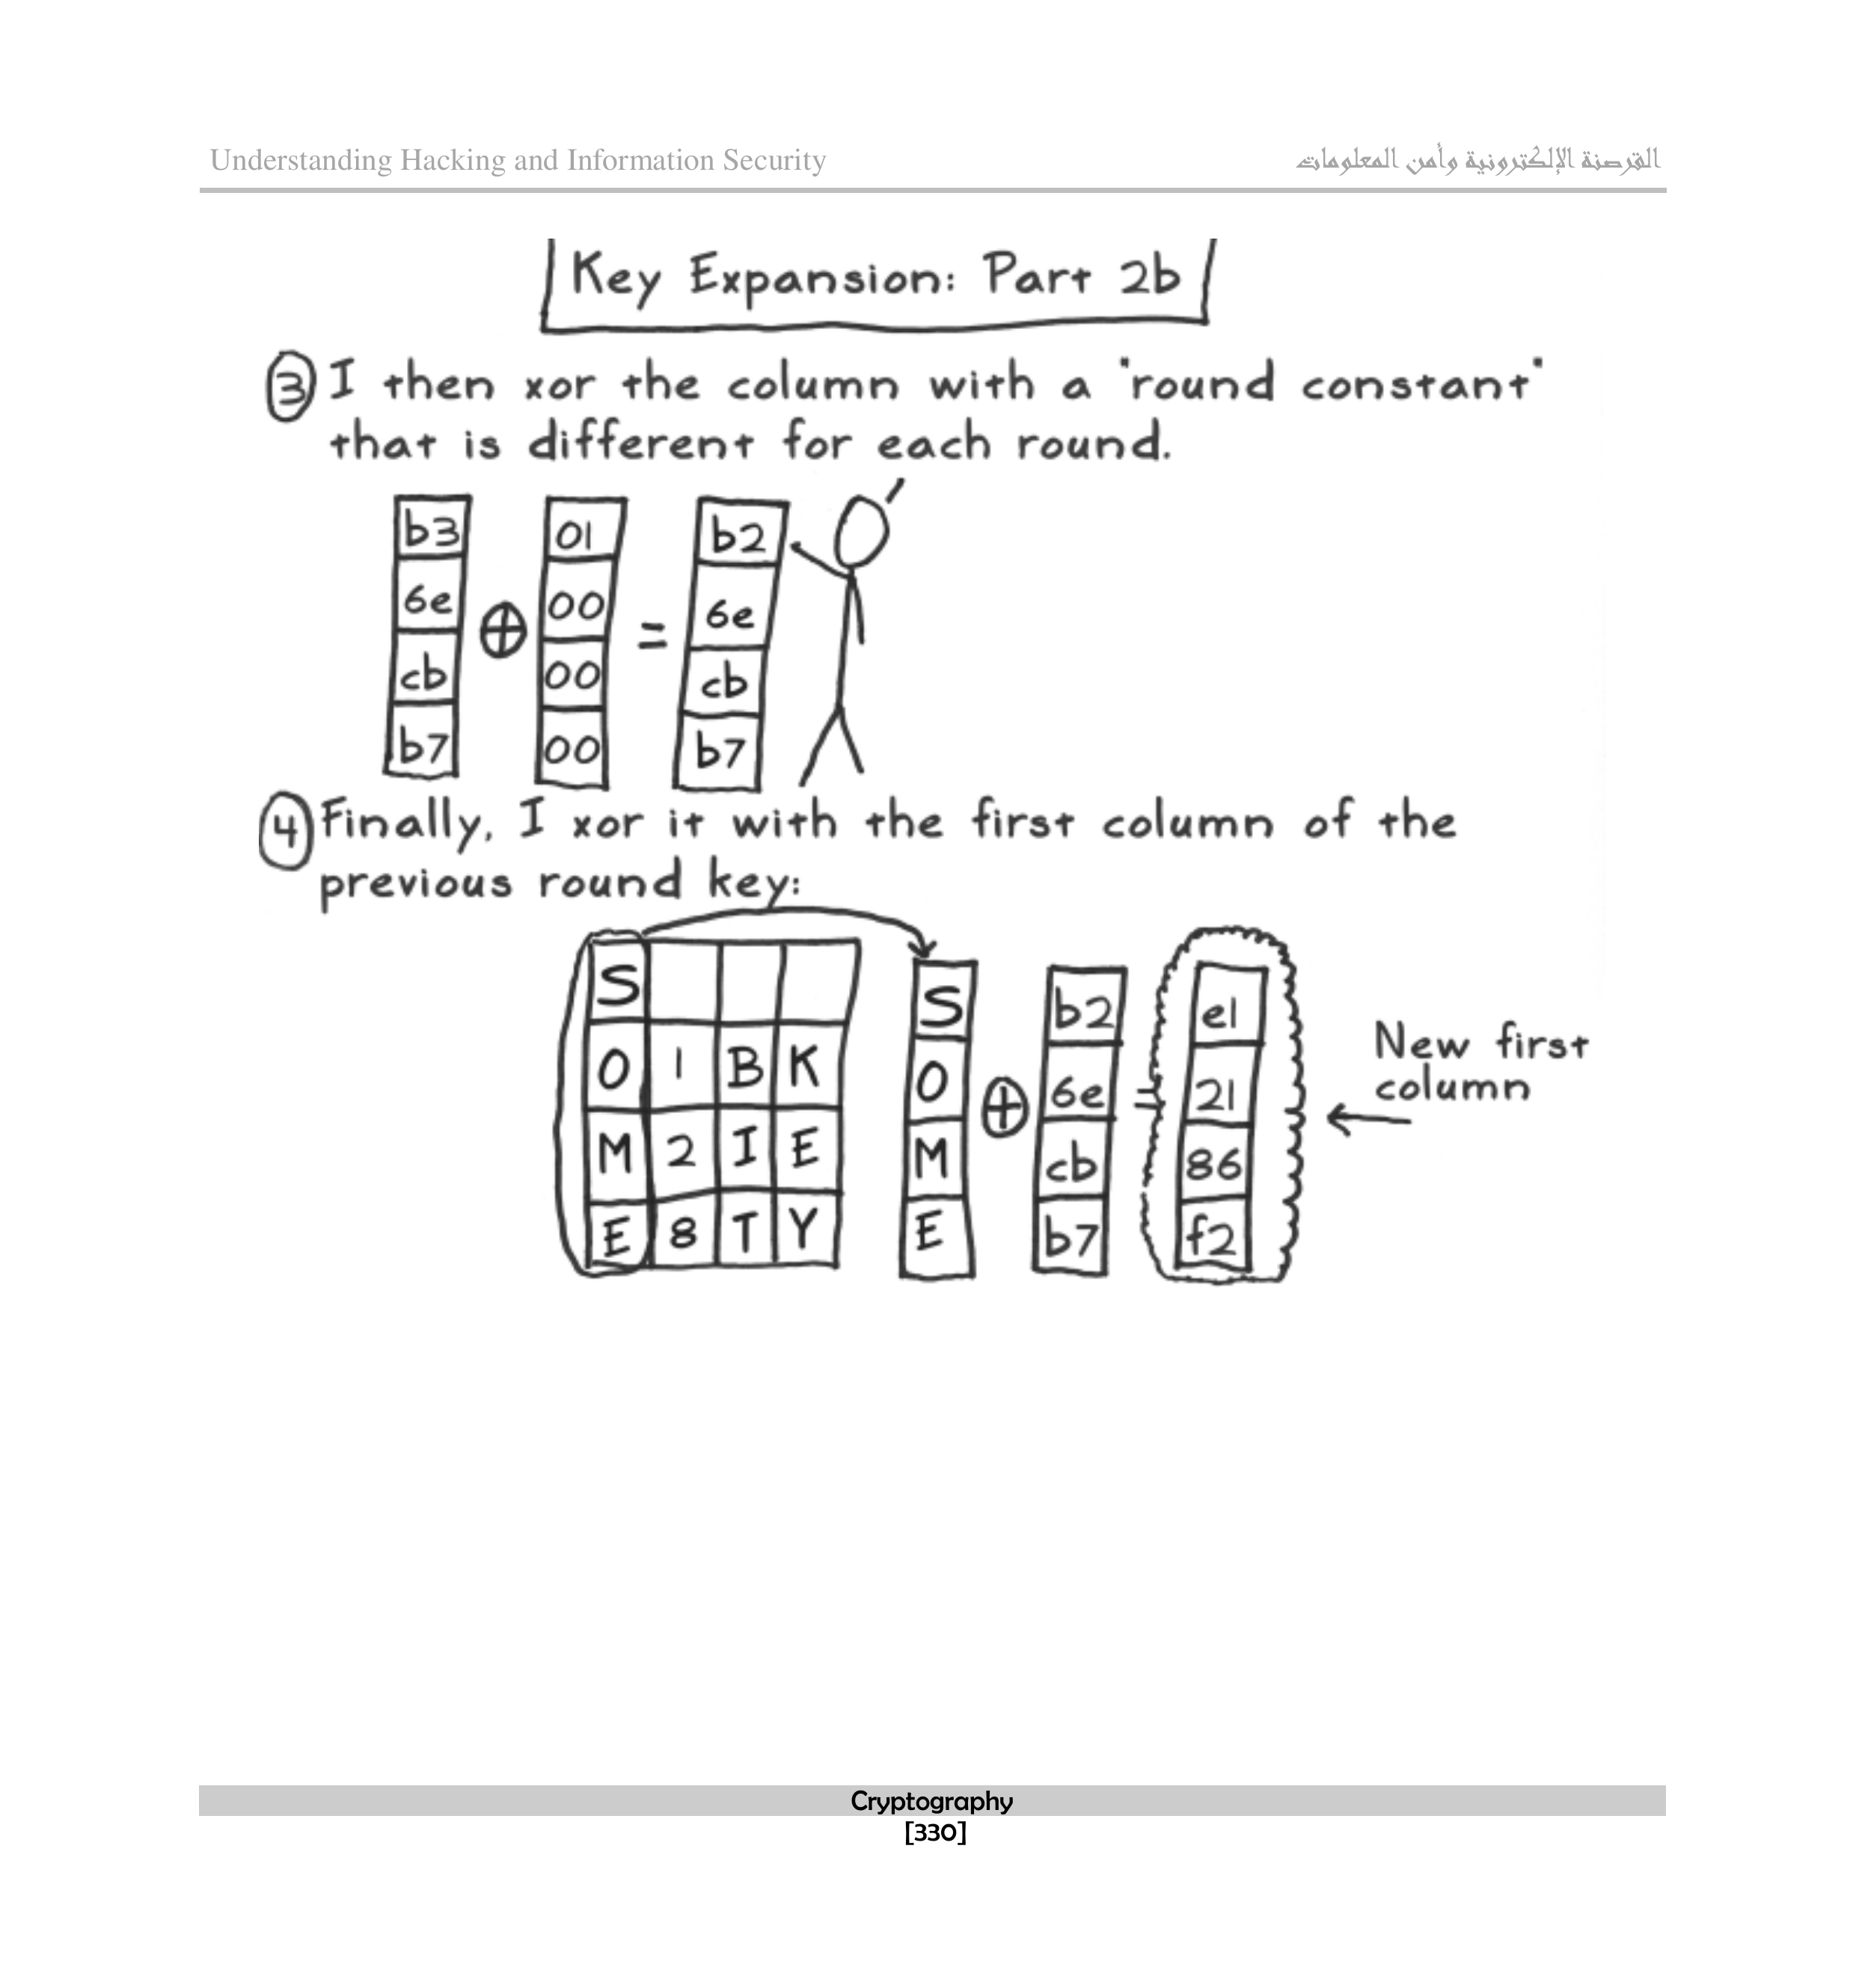 Understanding Hacking and Information Security القرصنة الإلكترونية وأمن المعلومات
Key Expansion: Part 2b
3 I then xor the column with a "round constant"
that is different for each round.
b3 01 b2
6e ⊕ 00 = 6e
cb 00 cb
b7 00 b7
4 Finally, I xor it with the first column of the
previous round key:
S S b2 e1
O 1 B K O ⊕ 6e = 21
M 2 I E M cb 86
E 8 T Y E b7 f2
New first
column
Cryptography
[330]